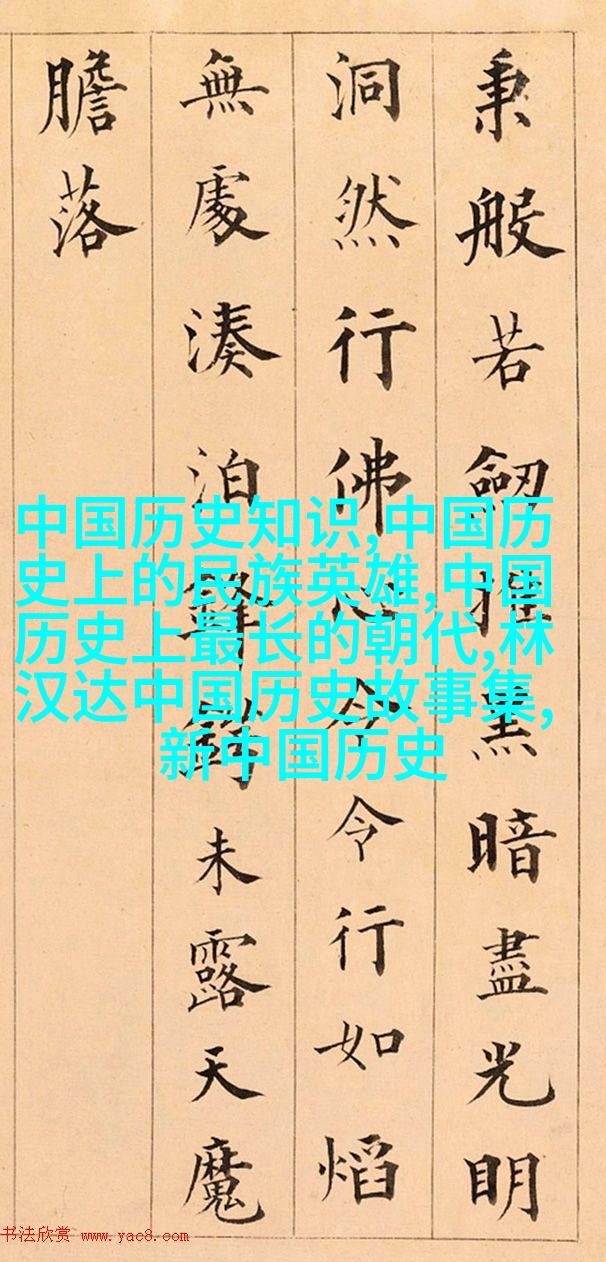 秉般若劒黑暗盡光明
洞然行佛心令令行如熖
無處湊泊未露天魔
膽落
中国历史知识,中国历
史上的民族英雄,中国
历史上最长的朝代,林
汉达中国历史故事集,
新中国历史
书法欣赏 www.yac8.com